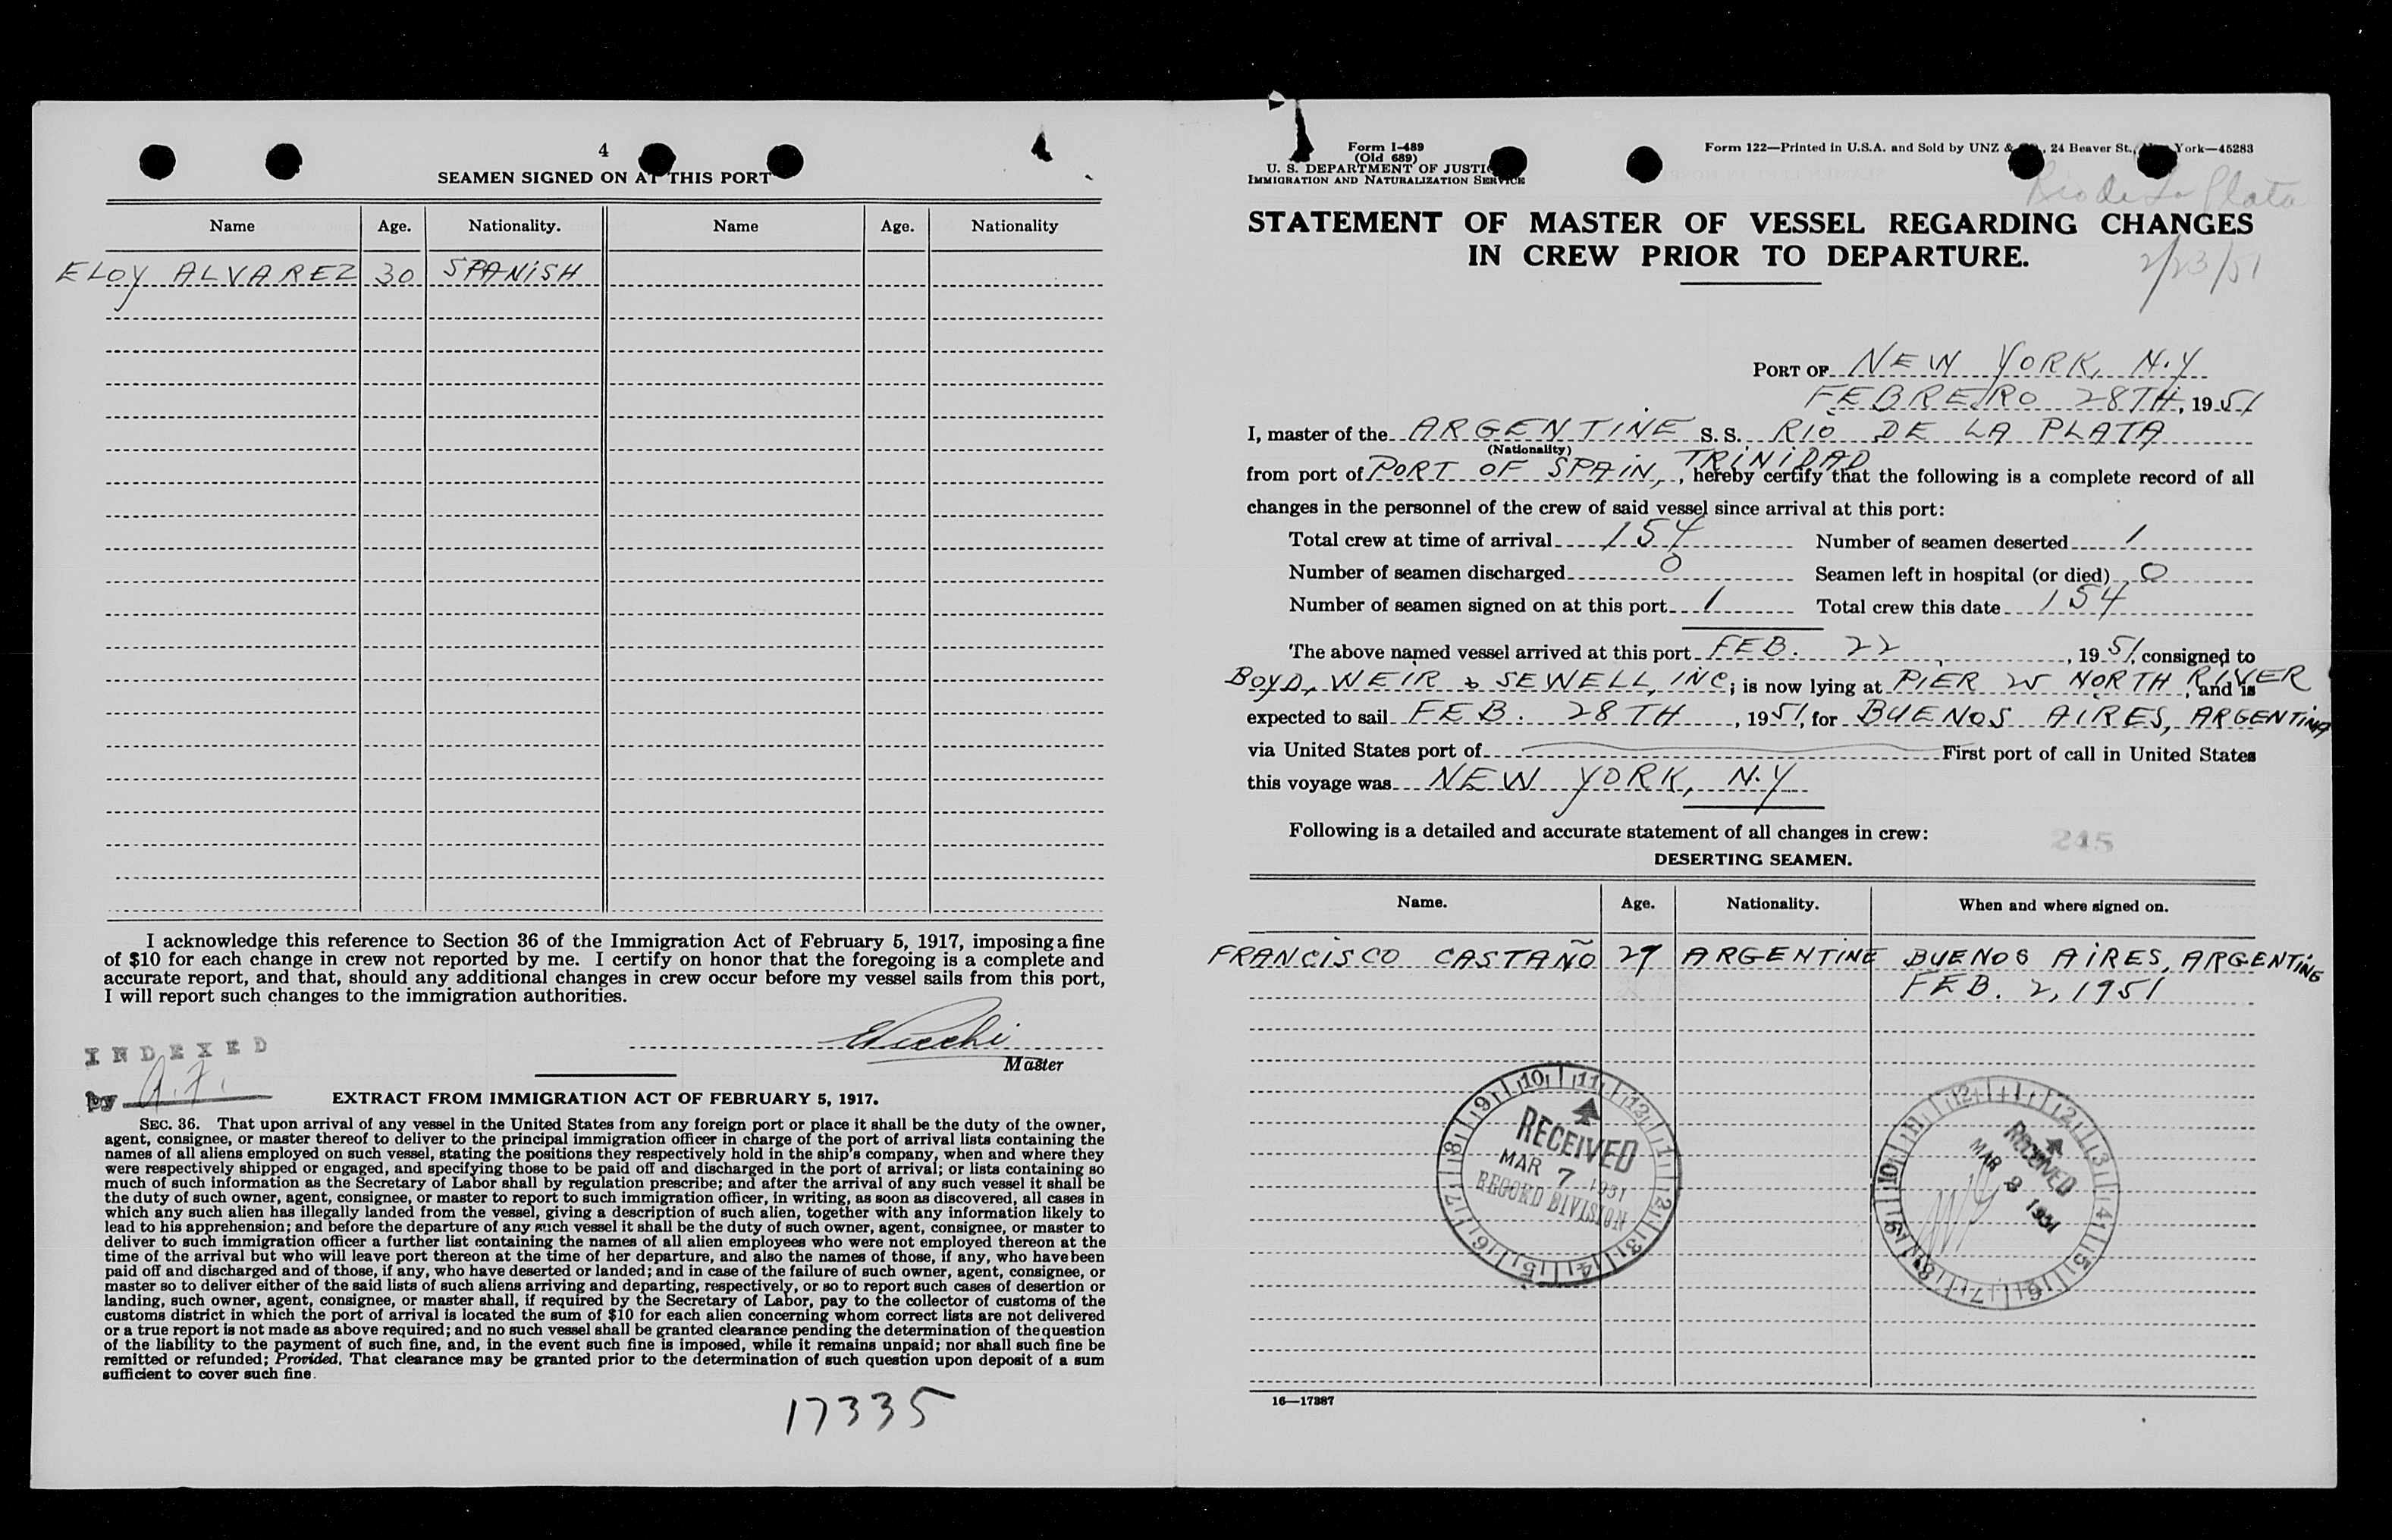 4
SEAMEN SIGNED ON AT THIS PORT
Name Age. Nationality. Name Age. Nationality
ELOY ALVAREZ 30 SPANISH
I acknowledge this reference to Section 36 of the Immigration Act of February 5, 1917, imposing a fine
of $10 for each change in crew not reported by me. I certify on honor that the foregoing is a complete and
accurate report, and that, should any additional changes in crew occur before my vessel sails from this port,
I will report such changes to the immigration authorities.
Master
INDEXED
by A.F.
EXTRACT FROM IMMIGRATION ACT OF FEBRUARY 5, 1917.
SEC. 36. That upon arrival of any vessel in the United States from any foreign port or place it shall be the duty of the owner,
agent, consignee, or master thereof to deliver to the principal immigration officer in charge of the port of arrival lists containing the
names of all aliens employed on such vessel, stating the positions they respectively hold in the ship's company, when and where they
were respectively shipped or engaged, and specifying those to be paid off and discharged in the port of arrival; or lists containing so
much of such information as the Secretary of Labor shall by regulation prescribe; and after the arrival of any such vessel it shall be
the duty of such owner, agent, consignee, or master to report to such immigration officer, in writing, as soon as discovered, all cases in
which any such alien has illegally landed from the vessel, giving a description of such alien, together with any information likely to
lead to his apprehension; and before the departure of any such vessel it shall be the duty of such owner, agent, consignee, or master to
deliver to such immigration officer a further list containing the names of all alien employees who were not employed thereon at the
time of the arrival but who will leave port thereon at the time of her departure, and also the names of those, if any, who have been
paid off and discharged and of those, if any, who have deserted or landed; and in case of the failure of such owner, agent, consignee, or
master so to deliver either of the said lists of such aliens arriving and departing, respectively, or so to report such cases of desertion or
landing, such owner, agent, consignee, or master shall, if required by the Secretary of Labor, pay to the collector of customs of the
customs district in which the port of arrival is located the sum of $10 for each alien concerning whom correct lists are not delivered
or a true report is not made as above required; and no such vessel shall be granted clearance pending the determination of the question
of the liability to the payment of such fine, and, in the event such fine is imposed, while it remains unpaid; nor shall such fine be
remitted or refunded; Provided, That clearance may be granted prior to the determination of such question upon deposit of a sum
sufficient to cover such fine.
17335
Form I-489
(Old 689)
U. S. DEPARTMENT OF JUSTICE
IMMIGRATION AND NATURALIZATION SERVICE
Form 122—Printed in U.S.A. and Sold by UNZ & , 24 Beaver St., New York—45283
Rio de La Plata
2/23/51
STATEMENT OF MASTER OF VESSEL REGARDING CHANGES
IN CREW PRIOR TO DEPARTURE.
PORT OF NEW YORK, N.Y
FEBRERO 28TH, 1951
I, master of the ARGENTINE S. S. RIO DE LA PLATA
(Nationality)
from port of PORT OF SPAIN, TRINIDAD, hereby certify that the following is a complete record of all
changes in the personnel of the crew of said vessel since arrival at this port:
Total crew at time of arrival 154 Number of seamen deserted 1
Number of seamen discharged 0 Seamen left in hospital (or died) 0
Number of seamen signed on at this port 1 Total crew this date 154
The above named vessel arrived at this port FEB. 22, 1951, consigned to
BOYD, WEIR & SEWELL, INC; is now lying at PIER 25 NORTH RIVER, and is
expected to sail FEB. 28TH, 1951, for BUENOS AIRES, ARGENTINA
via United States port of First port of call in United States
this voyage was NEW YORK, N.Y
Following is a detailed and accurate statement of all changes in crew:
245
DESERTING SEAMEN.
Name. Age. Nationality. When and where signed on.
FRANCISCO CASTAÑO 29 ARGENTINE BUENOS AIRES, ARGENTINE
FEB. 2, 1951
RECEIVED
MAR 7 1951
RECORD DIVISION
RECEIVED
MAR 8 1951
16—17387